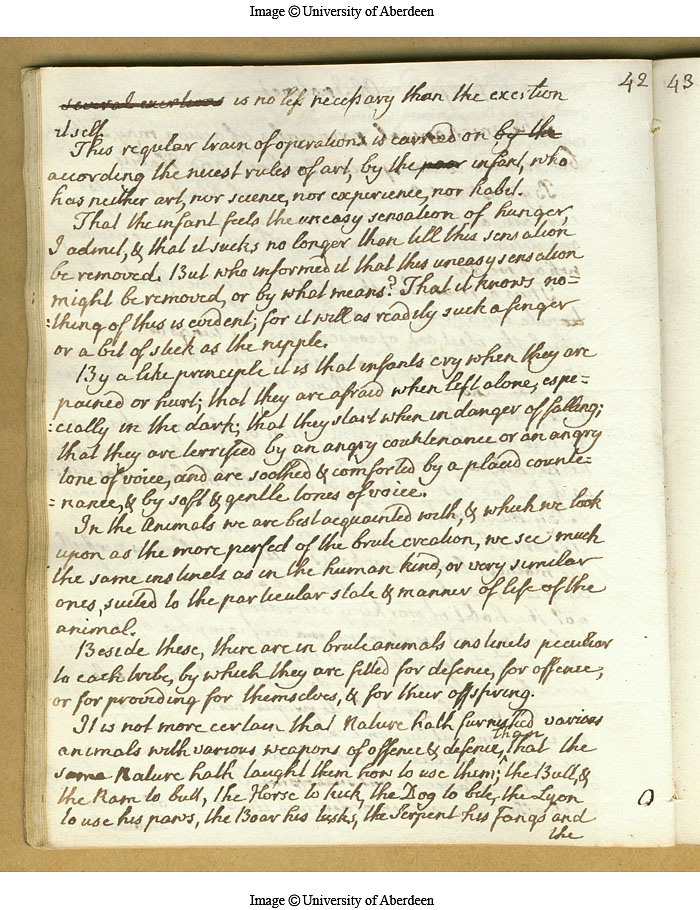 Image © University of Aberdeen
42 43
several exertions is no less necessary than the exertion
itself.
This regular train of operations is carried on by the
according the nicest rules of art, by the poor infant, who
has neither art, nor science, nor experience, nor habit.
That the infant feels the uneasy sensation of hunger,
I admit, & that it sucks no longer than till this sensation
be removed. But who informed it that this uneasy sensation
might be removed, or by what means? That it knows no=
:thing of this is evident; for it will as readily suck a finger
or a bit of stick as the nipple.
By a like principle it is that infants cry when they are
pained or hurt; that they are afraid when left alone, espe=
:cially in the dark; that they start when in danger of falling;
that they are terrified by an angry countenance or an angry
tone of voice, and are soothed & comforted by a placid counte=
:nance, & by soft & gentle tones of voice.
In the Animals we are best acquainted with, & which we look
upon as the more perfect of the brute creation, we see much
the same instincts as in the human kind, or very similar
ones, suited to the particular state & manner of life of the
animal.
Beside these, there are in brute animals instincts peculiar
to each tribe, by which they are fitted for defence, for offence,
or for providing for themselves, & for their offspring.
It is not more certain that Nature hath furnished various
animals with various weapons of offence & defence, than that the
same Nature hath taught them how to use them; the Bull, &
the Ram to butt, the Horse to kick, the Dog to bite, the Lyon
to use his paws, the Boar his tusks, the Serpent his Fangs and
the
Image © University of Aberdeen